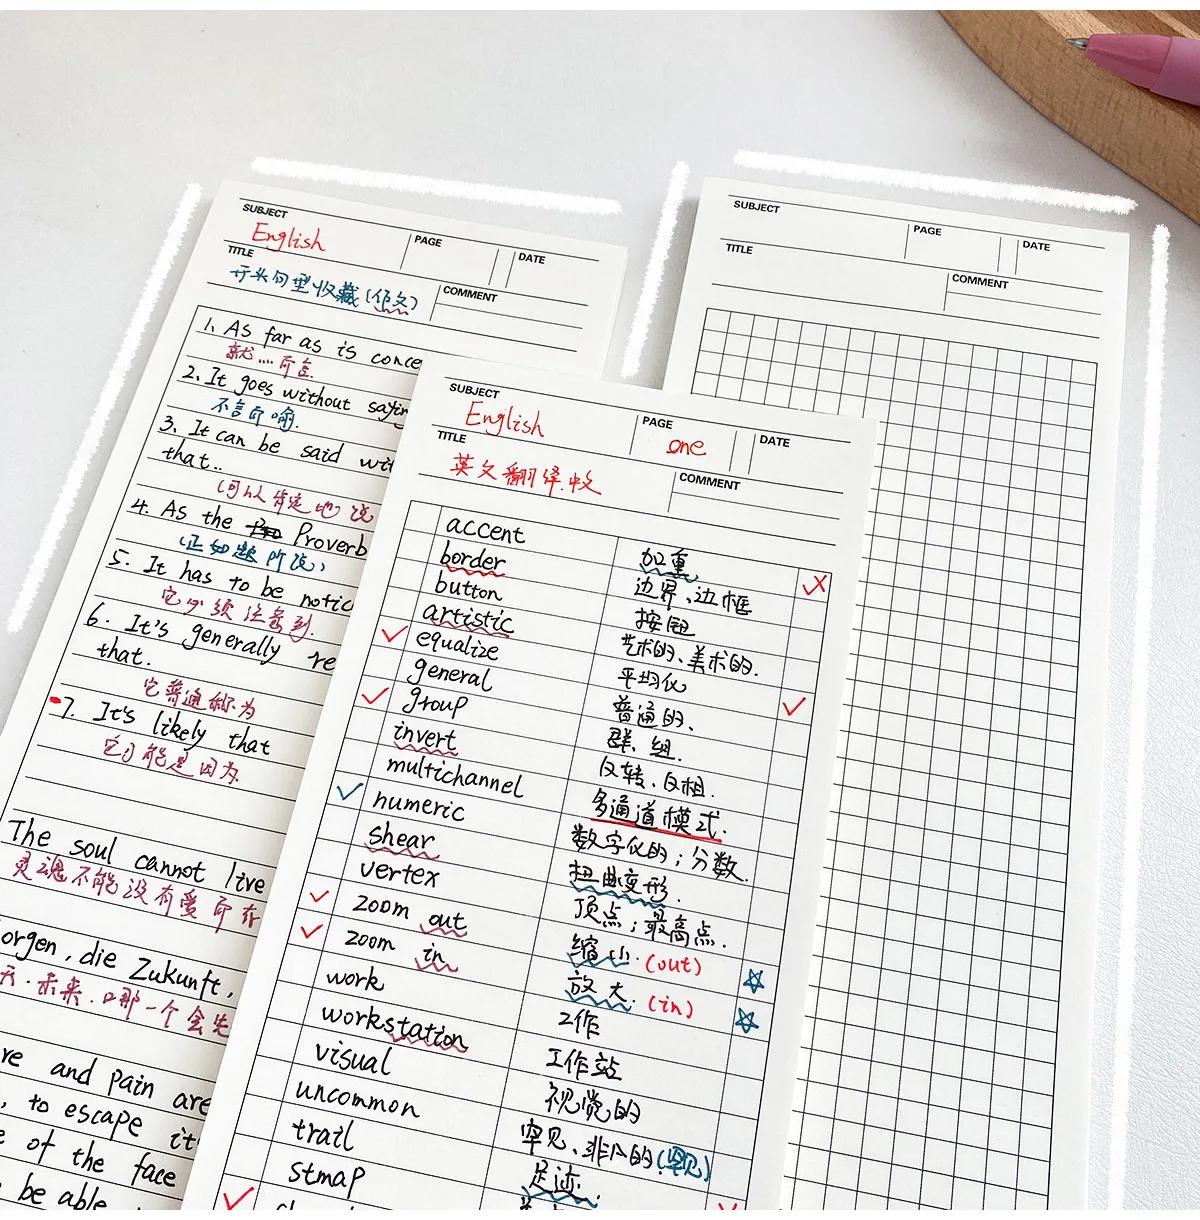 SUBJECT
English
PAGE
DATE
TITLE
开头句型收藏(作文)
COMMENT
1. As far as is conce
就....而言.
2. It goes without sayin
不言而喻.
3. It can be said wit
that..
(可以肯定地说
4. As the Proverb
(正如题所说)
5. It has to be notic
它必须注意到.
6. It's generally re
that.
它普通称为
7. It's likely that
它可能是因为.
The soul cannot live
灵魂不能没有爱而存
orgen, die Zukunft,
天.未来.哪一个会先
re and pain are
, to escape it
e of the face
be able
SUBJECT
English
PAGE
one
DATE
TITLE
英文翻译.中文
COMMENT
accent 加重
border 边界、边框
button 按钮
artistic 艺术的、美术的.
equalize 平均化
general 普通的、
group 群、组.
invert 反转、反相.
multichannel 多通道模式.
numeric 数字化的；分数.
shear 扭曲变形.
vertex 顶点；最高点.
zoom out 缩小. (out)
zoom in 放大. (in)
work 工作
workstation 工作站
visual 视觉的
uncommon 罕见、非凡的(罕见)
trail 足迹.
stmap
SUBJECT
PAGE
DATE
TITLE
COMMENT